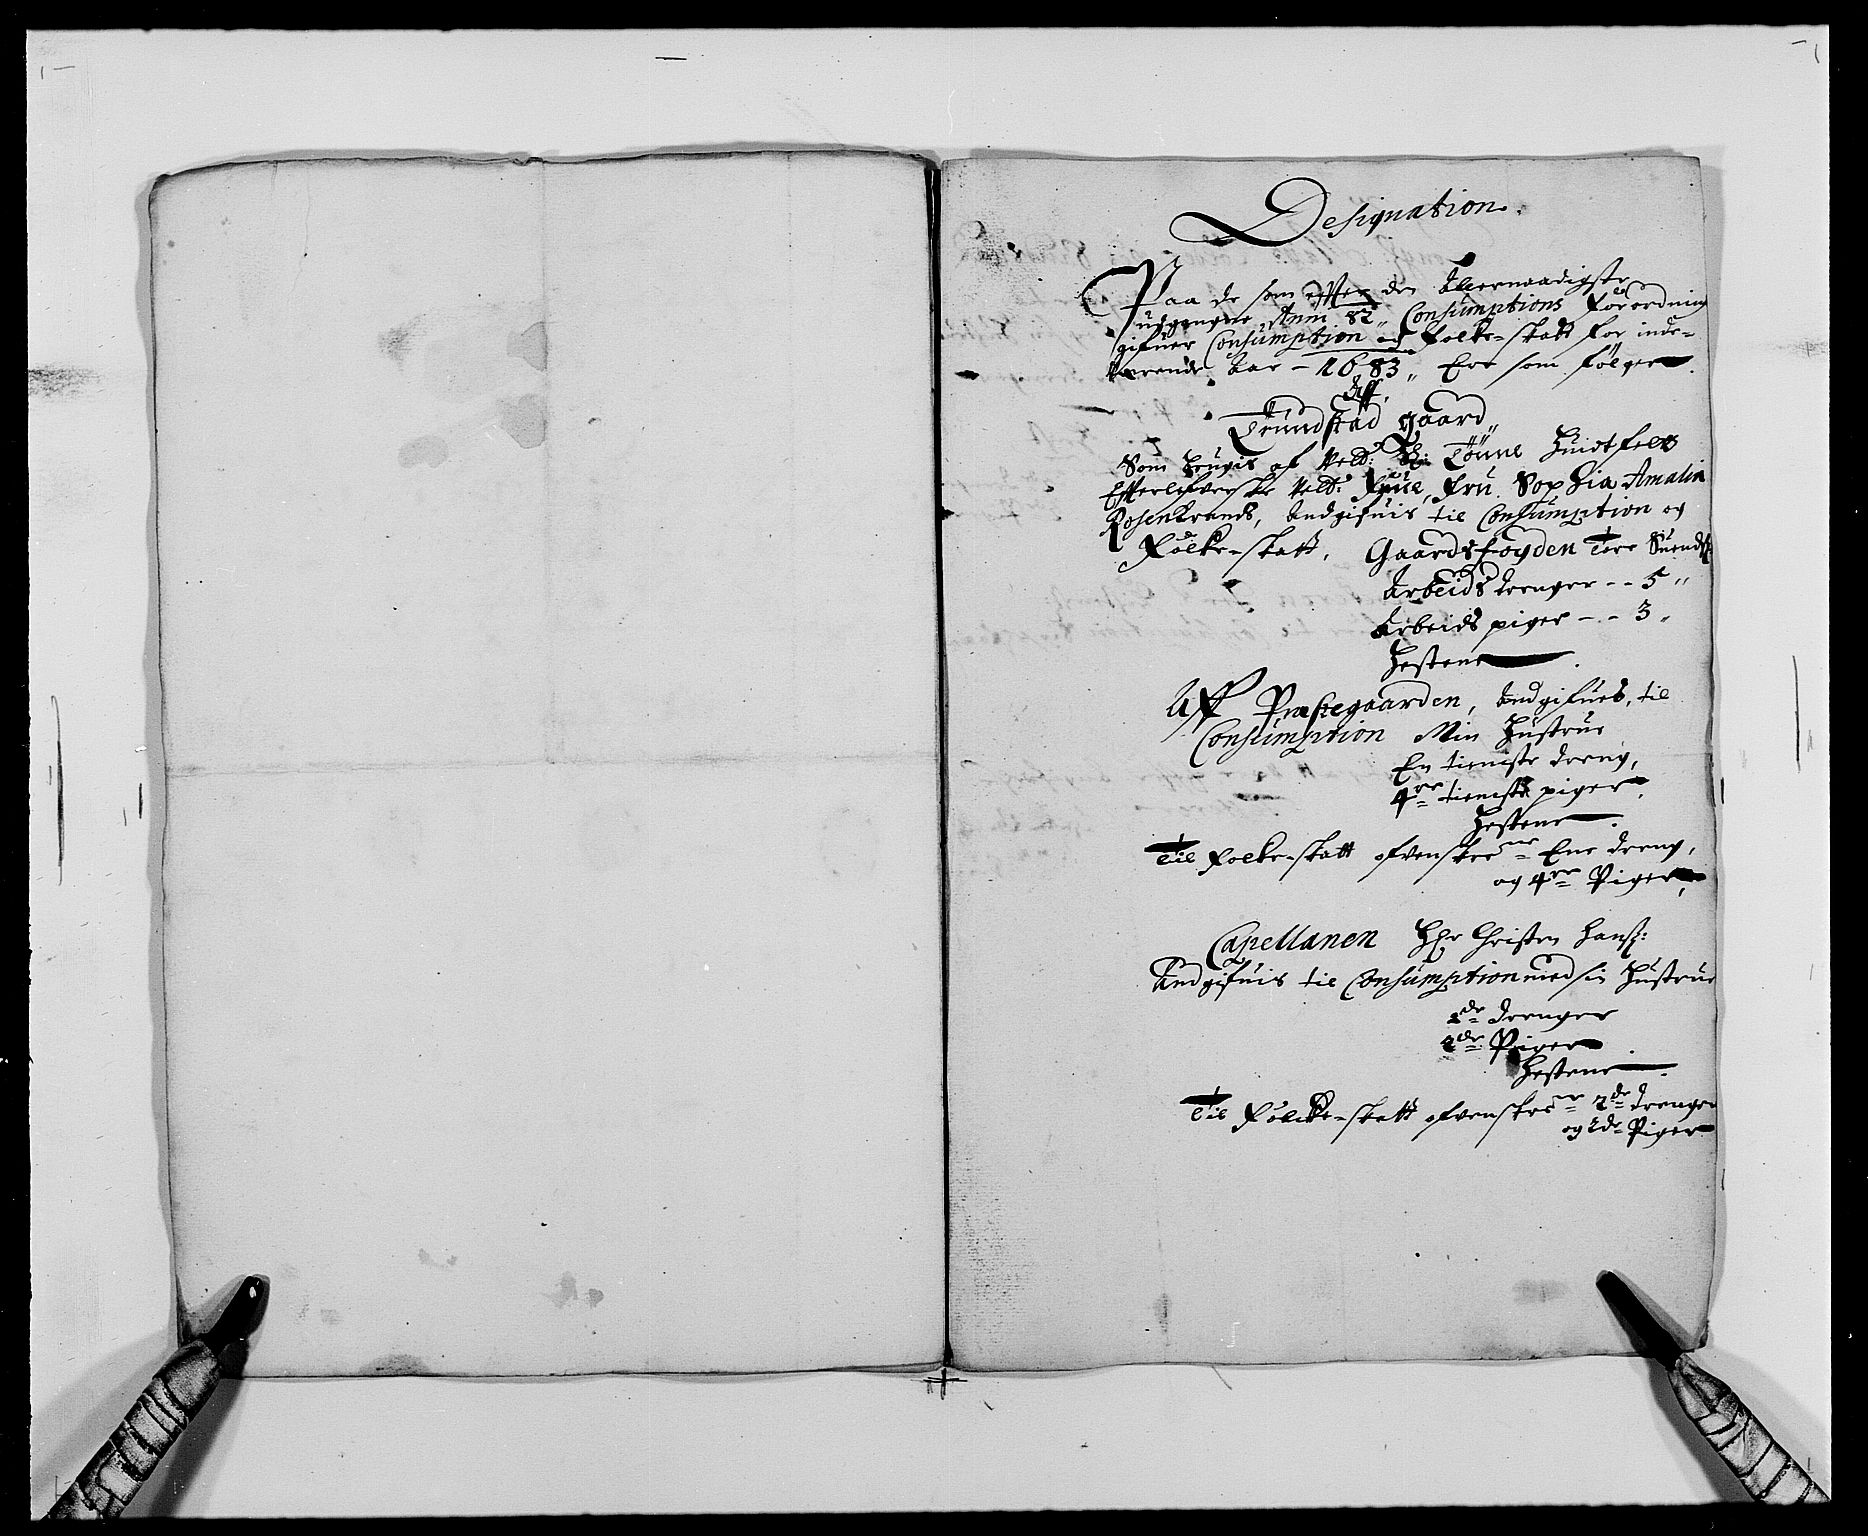 Designation.
Paa de som effter den Allernaadigste
udgangne Anni 82,, Consumptions Forordning
gifuer Consumption og Folke-skatt for inde-
værende Aar - 1683,, Ere som følger.
Aff.
Trundstad gaard,,
Som bruges af Velb: Hr: Tønne Huidtfelts
Efterlefverske Velb: Frue, Fru Sophia Amalia
Rosenkrands, Andgifuis til Consumption og
Folke-skatt, Gaardsfogden Tore Suends:
Arbeids drenger - - 5 ,,
Arbeids piger - - - 3 ,,
Hestene
Aff Præstegaarden, Andgifues, til
Consumption Min Hustrue
En tieniste dreng,
4re tieniste piger,
Hestene.
Til Folke-skatt ofvenskrefne Ene dreng,
og 4re Piger,
Capellanen Hr Christen Hanss:
Andgifuis til Consumption med sin Hustrue
2de drenger
2de Piger
Hestene.
Til Folcke-skatt ofvenskrefne 2de drenger
og 2de Piger